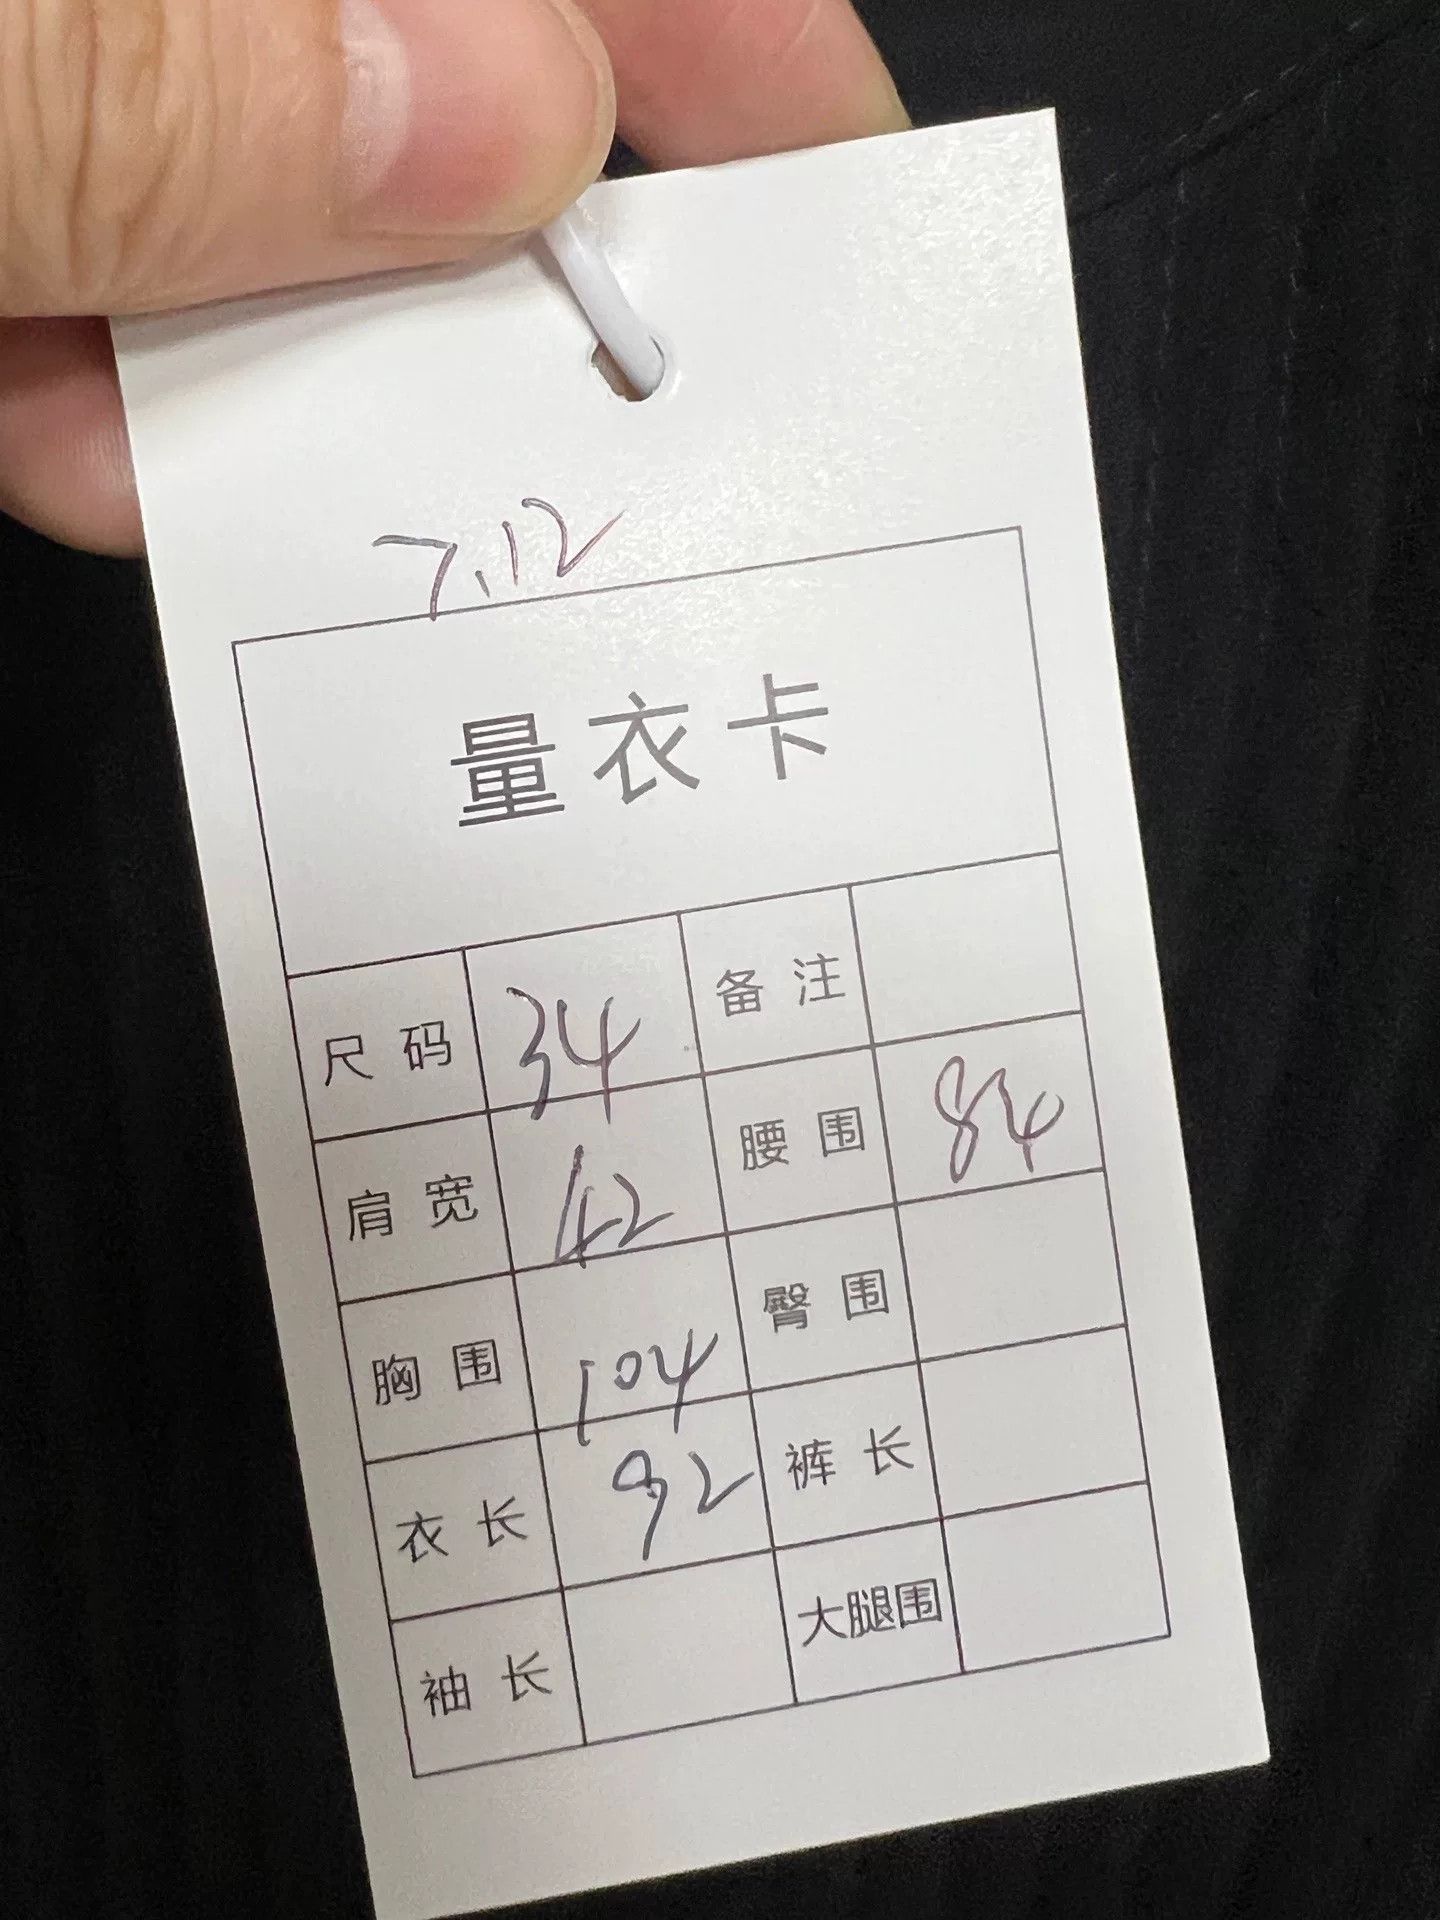 7.12
量衣卡
尺码 34 备注
肩宽 42 腰围 84
胸围 104 臀围
衣长 92 裤长
袖长 大腿围